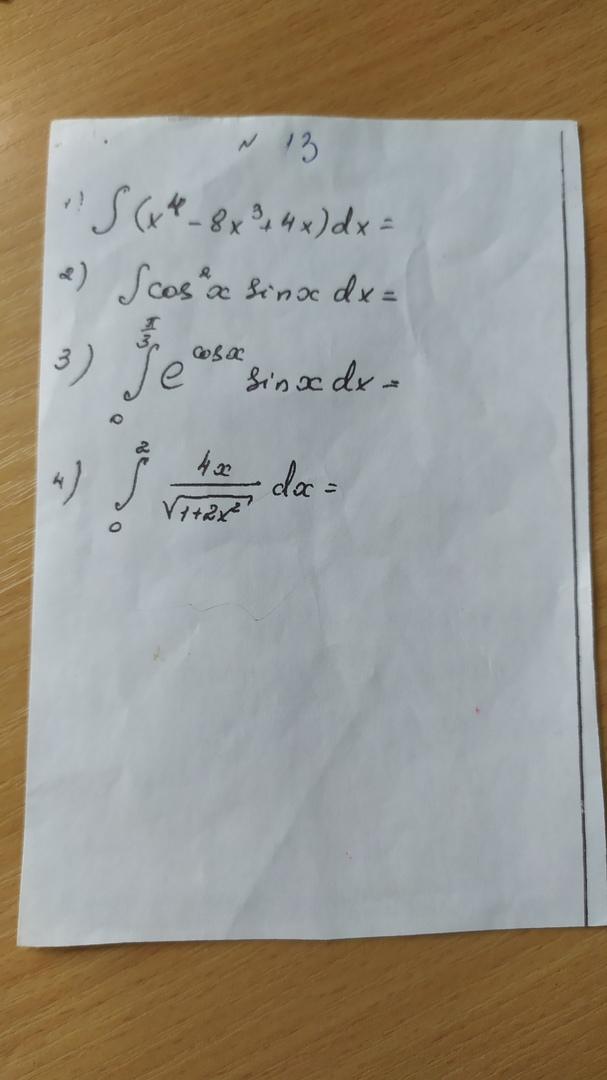 N 13
1) ∫(x⁴ - 8x³ + 4x)dx =
2) ∫cos²x sinx dx =
3) ∫₀^{π/3} e^{cosx} sinx dx =
4) ∫₀² 4x/√(1+2x²) dx =